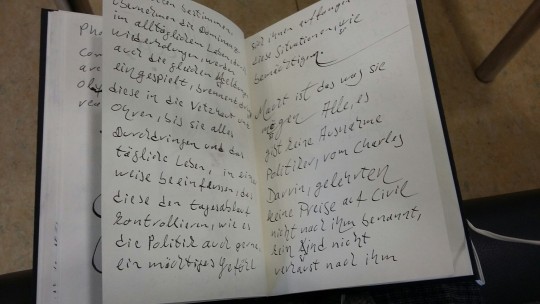 Pho
com
are
Oh
rea
bestimmen
übernehmen die Dominanz
im alltäglichen Leben, dann
wiederholungen, werden
auch die gleichen
eingespielt, brennend
diese in die
Ohren, bis sie alles
Durchdringen und das
tägliche Leben, in einer
weise beeinflussen, das
diese den Tagesablauf
kontrollieren, wie es
die Politik auch gerne,
ein mächtiges Gefühl
ihnen anfangen
diese Situationen, wie
bemächtigung.
Macht ist das was sie
mögen Alle, es
gibt keine Ausnahme
Politiker, vom Charles
Darvin, gelehrten
keine Preise auf Civil
nicht nach ihm benannt,
kein Kind nicht
nach ihm